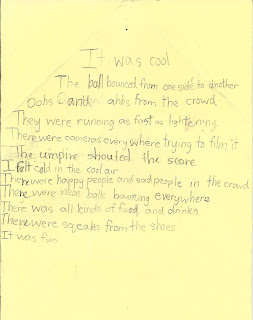 It was cool
The ball bounced from one side to another
Oohs and ahhs from the crowd
They were running as fast as lightening
There were cameras everywhere trying to film it
The umpire shouted the score
I felt cold in the cool air
There were happy people and sad people in the crowd
There were neon balls bouncing everywhere
There was all kinds of food and drinks
There were squeaks from the shoes
It was fun